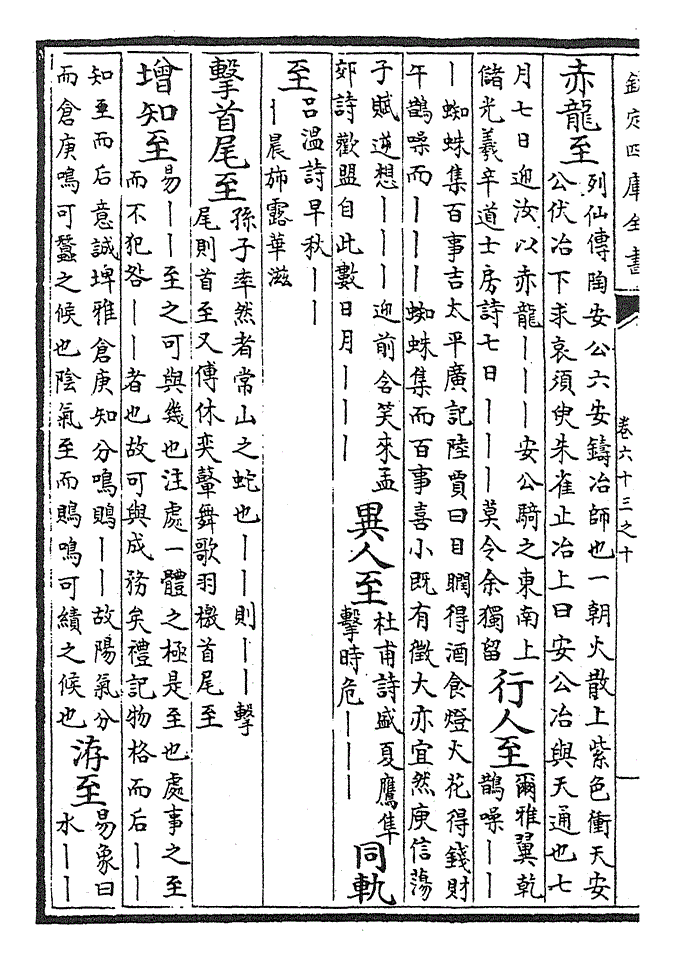 欽定四庫全書 卷六十三之十
赤龍至
列仙傳陶安公六安鑄冶師也一朝火散上紫色衝天安
公伏冶下求哀須臾朱雀止冶上曰安公冶與天通也七
月七日迎汝以赤龍丨丨丨安公騎之東南上
儲光羲辛道士房詩七日丨丨丨莫令余獨留
行人至
爾雅翼乾
鵲噪丨丨
丨蜘蛛集百事吉太平廣記陸賈曰目瞤得酒食燈火花得錢財
午鵲噪而丨丨丨蜘蛛集而百事喜小既有徵大亦宜然庾信蕩
子賦逆想丨丨丨迎前含笑來孟
郊詩歡盟自此數日月丨丨丨
異人至
杜甫詩盛夏鷹隼
擊時危丨丨丨
同軌
至
呂溫詩早秋丨丨
丨晨斾露華滋
擊首尾至
孫子率然者常山之蛇也丨丨則丨丨擊
尾則首至又傅休奕鼙舞歌羽檄首尾至
增知至
易丨丨至之可與幾也注處一體之極是至也處事之至
而不犯咎丨丨者也故可與成務矣禮記物格而后丨丨
知至而后意誠埤雅倉庚知分鳴鵙丨丨故陽氣分
而倉庚鳴可蠶之候也陰氣至而鵙鳴可績之候也
洊至
易象曰
水丨丨